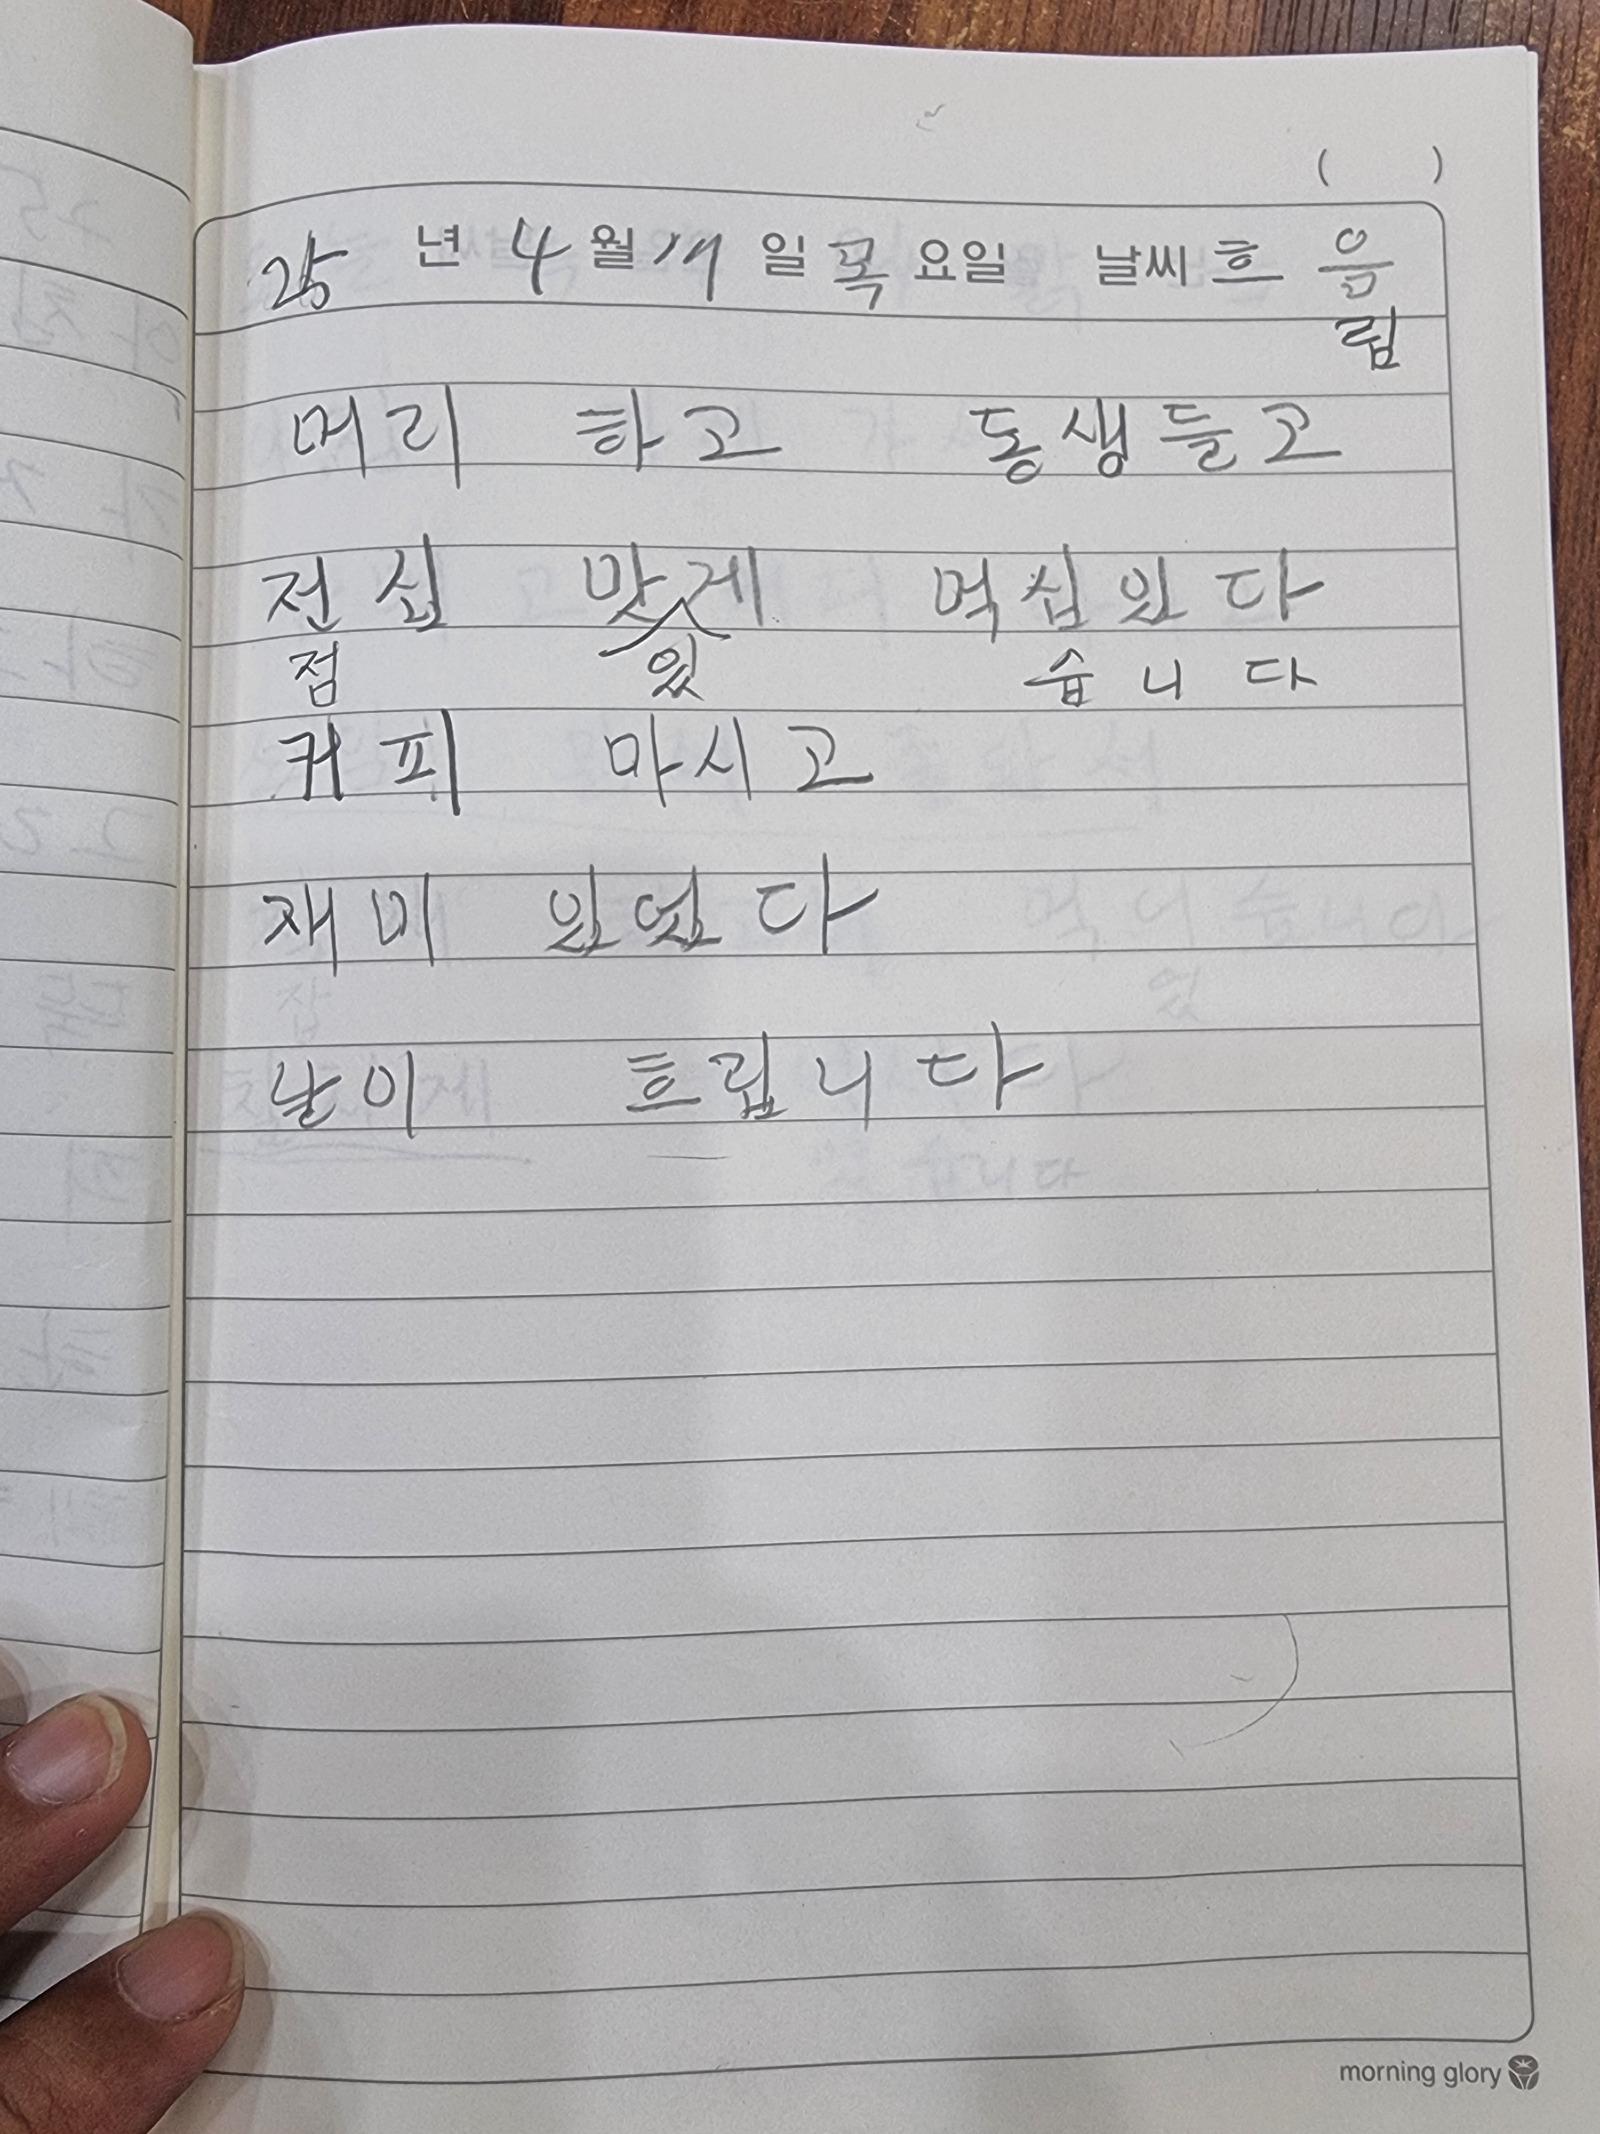 (      )
25 년 4 월 17 일 목 요일 날씨 흐 음
림
머리 하고 동생들고
전심 맛게 먹십있다
점 있 습니다
커피 마시고
재미 있었다
날이 흐립니다
morning glory